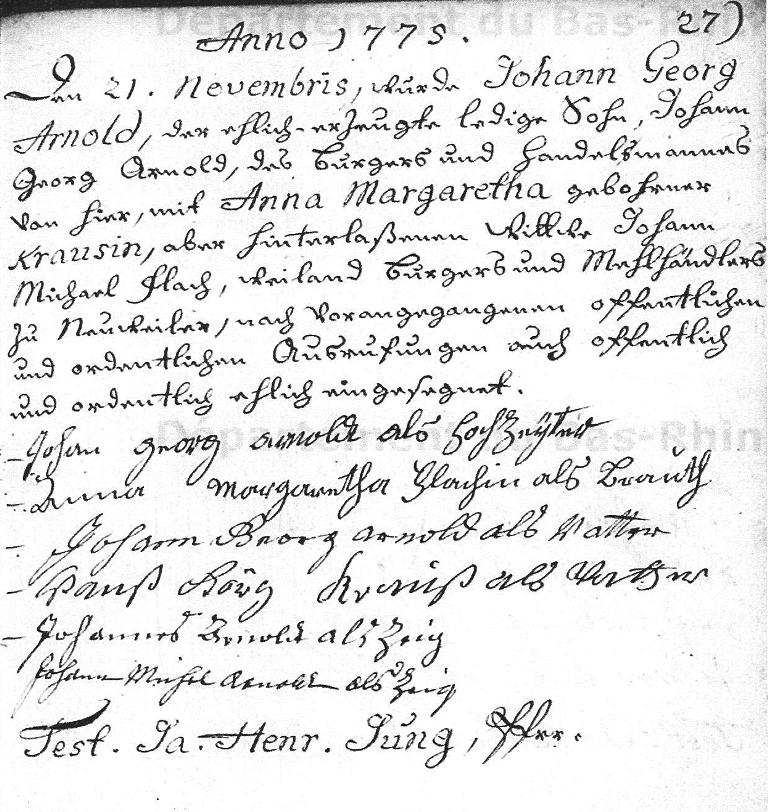 Département du Bas-Rhin
Anno 1775. 27)
Den 21. Novembris, wurde Johann Georg
Arnold, der ehlich-erzeugte ledige Sohn, Johann
Georg Arnold, des Burgers und Handelsmannes
von hier, mit Anna Margaretha gebohrner
Krausin, aber hinterlaßenen Wittwe Johann
Michael Flach, weiland Burgers und Mehlhändlers
zu Neuweiler, nach vorangegangenen offentlichen
und ordentlichen Ausrufungen auch offentlich
und ordentlich ehlich eingesegnet.
Département du Bas-Rhin
- Johan georg arnoldt als hochzeyter
- Anna Margaretha Flachin als Brauth
- Johann Georg arnold als Vatter
- Hanß Görg Krauß als Vatter
- Johannes Arnoldt als Zeig
Johann Michel Arnoldt als Zeig
Test. Ja. Henr. Jung, Pfrr.